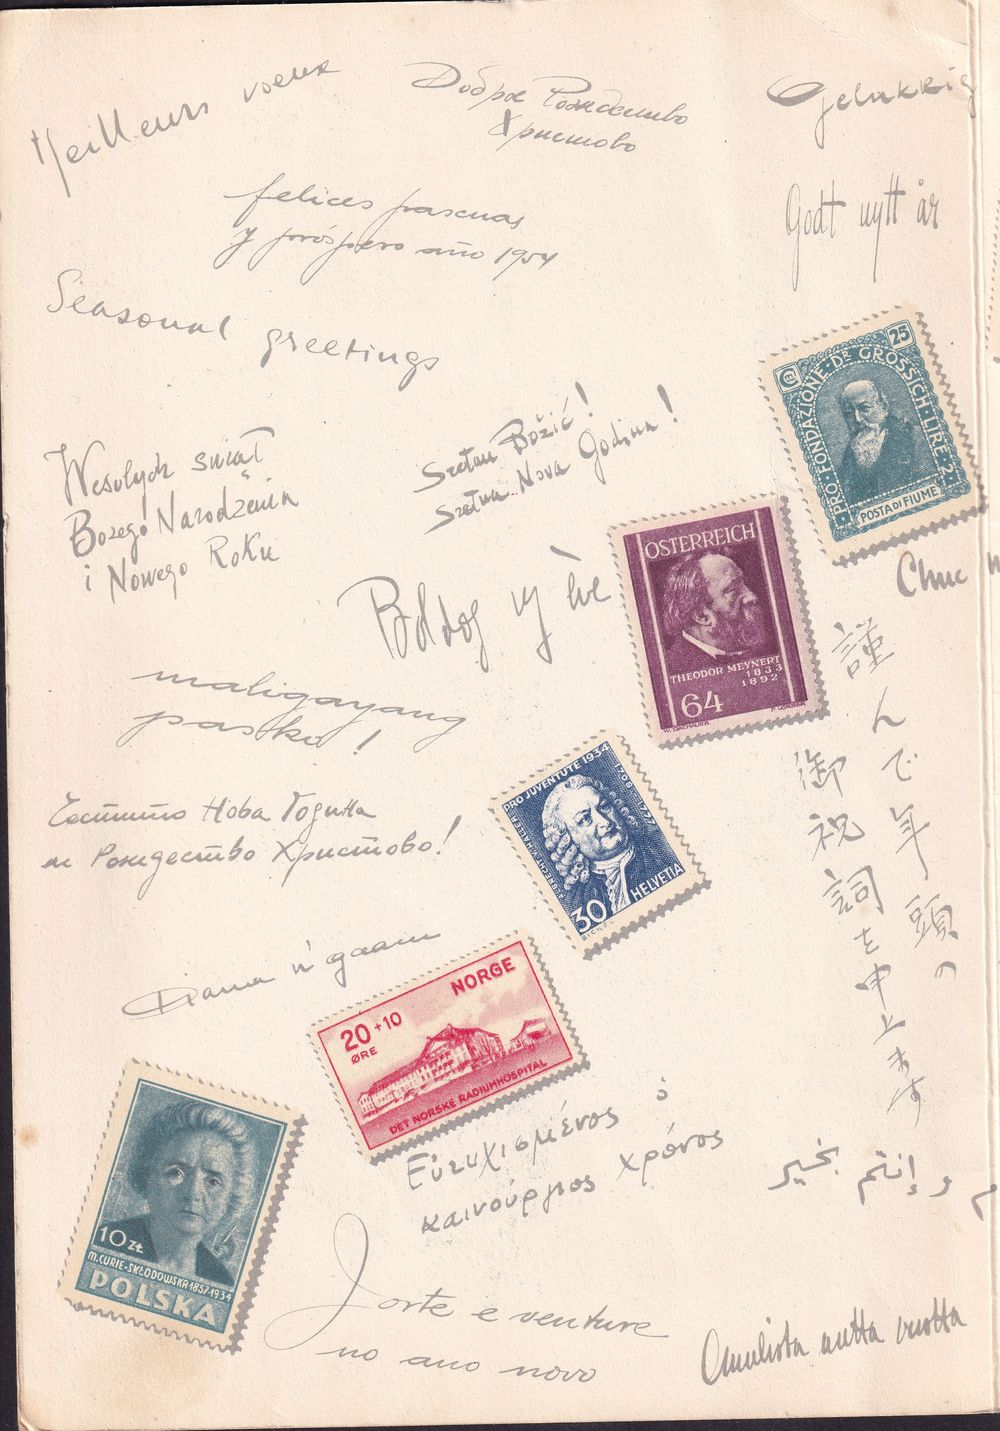 Meilleurs voeux
Доброе Рождество
Христово
Gelukkig
felices pascuas
y próspero año 1954
Godt nytt år
Seasonal greetings
PRO FONDAZIONE DR GROSSICH LIRE 2
25
POSTA DI FIUME
Wesolych świąt
Bożego Narodzenia
i Nowego Roku
Sretan Božić!
Sretna Nova Godina!
ÖSTERREICH
THEODOR MEYNERT
1833
1892
64
Boldog új
Chuc
謹んで年頭の
御祝詞を申上ます
maligayang
pasko!
PRO JUVENTUTE 1934
ALBRECHT V. HALLER
1708 1777
HELVETIA
30
Честито Нова Година
и Рождество Христово!
NORGE
20+10
ØRE
DET NORSKE RADIUMHOSPITAL
Εὐτυχισμένος ὁ
καινούργιος χρόνος
وإنتم بخير
10 ZŁ
M. CURIE-SKŁODOWSKA 1857-1934
POLSKA
e venture
no ano novo
Onnellista uutta vuotta